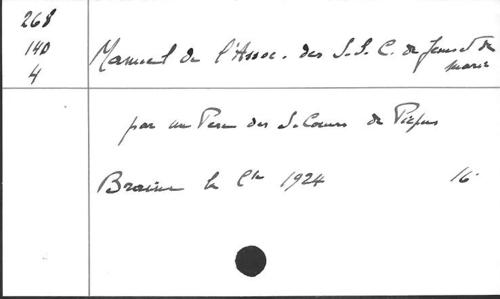 268
140
4
Manuel de l'Assoc. des S.S. C. de Jesus et de
Marie
par un Pere des S. Coeurs de Picpus
Braine le Cte 1924 16